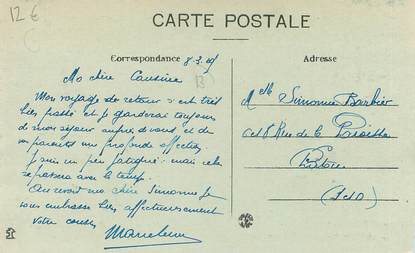 12 €
CARTE POSTALE
Correspondance
Adresse
Ma chère Cousine
Mon voyage de retour s'est très
bien passé et je garderai toujours
de mon séjour auprès de vous et de
vos parents une profonde affection
Je suis un peu fatigué mais cela
se passera avec le temps.
Au revoir ma chère Simonne je
vous embrasse bien affectueusement
Votre cousin
Mlle Simonne Barbier
Rue de
(S&O)